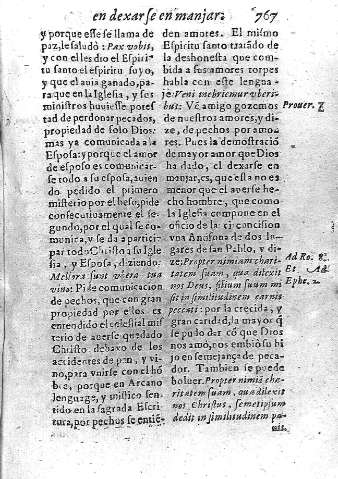 en dexarse en manjar. 767
y porque esse se llama de
paz, le saludò: Pax vobis,
y con el les dio el Espiri-
tu santo el espiritu suyo,
y que el auia ganado, pa-
ra que en la Iglesia, y ses
ministros huuiesse potes-
tad de perdonar pecados,
propiedad de solo Dios:
mas ya comunicada a la
Esposa: y porque el amor
de esposo es comunicar-
se todo a su esposa, auien
do pedido el primero
misterio por el beso, pide
consecutiuamente el se-
gundo, por el qual se co-
munica, y se da a partici-
par todo Christo a su Igle
sia, y Esposa, diziendo
Meliora sunt vbera tua
vino: Pide comunicacion
de pechos, que con gran
propiedad por ellos es
entendido el celestial mist
terio de auerse quedado
Christo debaxo de los
accidentes de pan, y vi-
no, para vnirse con el hõ
bre, porque en Arcano
lenguage, y mistico sen-
tido en la sagrada Escri
tura, por pechos se entiē-
den amores. El mismo
Espiritu santo tratãdo de
la deshonesta que com-
bida a sus amores torpes
habla con este lengua-
je: Veni inebriemur vberi-
but: Vè amigo gozemos
de nuestros amores, y di-
ze, de pechos por amo-
res. Pues la demostraciõ
de mayor amor que Dios
ha dado, el dexarse en
manjar, es, que esta no es
menor que el averse he-
cho hombre, que como
la Iglesia compone en el
oficio de la circoncision
vna Antifona de dos lu-
gares de san Pablo, y di-
ze: Propter nimiam chari-
tatem suam, qua dilexit
nos Deus, filium suum mi
sit in similitudinem carnis
peccati: por la crecida, y
gran caridad, la mayor q̃
se pudo dar cõ que Dios
nos amò, nos embiò su hi
jo en semejança de peca-
dor. Tambien se puede
boluer. Propter nimiã cha-
ritatem suam, qua dilexit
nos Christus, semetipsum
dedit in similitudinem pa-
nis.
Prouer. 7
Ad Ro. 8.
Et Ad
Ephe. 2.